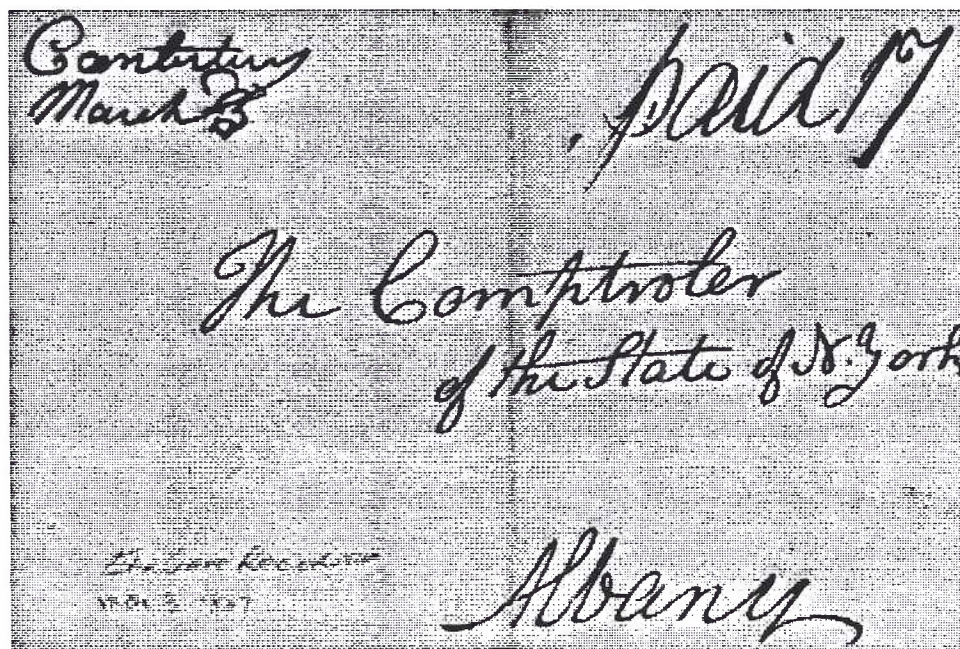 Canterbury
March
paid 17
The Comptroler
of the State of N. York
Albany